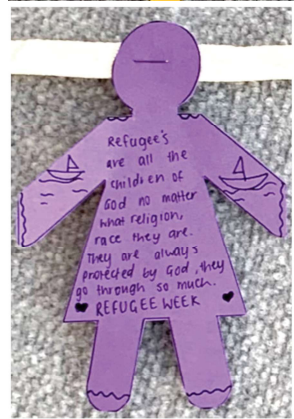 Refugee's
are all the
children of
God no matter
what religion,
race they are.
They are always
protected by God, they
go through so much.
REFUGEE WEEK